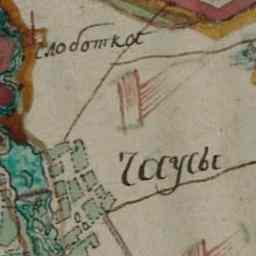 слоботка
Чаусы